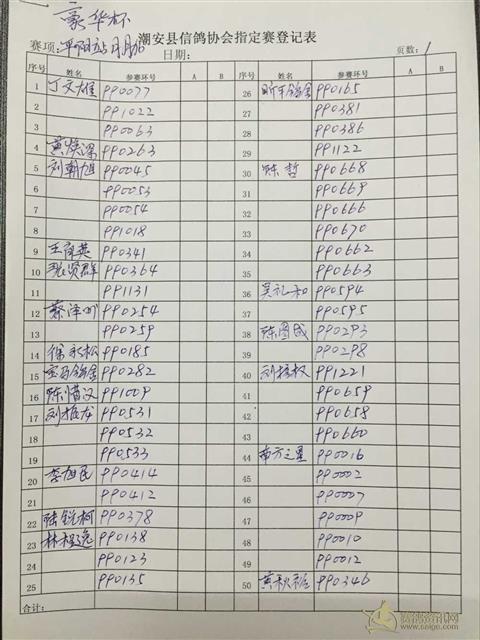 豪华杯
潮安县信鸽协会指定赛登记表
赛项: 日期: 页数: 1
序号 姓名 参赛环号 A B 序号 姓名 参赛环号 A B
1 丁文雄 PP0077 26 PP0165
2 PP1022 27 PP0381
3 PP0063 28 PP0386
4 黄焕深 PP0263 29 PP1122
5 刘朝旭 PP0045 30 陈哲 PP0668
6 PP0053 31 PP0669
7 PP0054 32 PP0666
8 PP1018 33 PP0670
9 王育英 PP0341 34 PP0662
10 PP0364 35 PP0663
11 PP1131 36 吴礼和 PP0594
12 蔡泽 PP0254 37 PP0595
13 PP0259 38 陈图成 PP0293
14 徐永松 PP0185 39 PP0298
15 宝马鸽舍 PP0282 40 刘 PP1221
16 陈惜汉 PP1009 41 PP0659
17 刘雄龙 PP0531 42 PP0658
18 PP0532 43 PP0660
19 PP0533 44 南方之星 PP0016
20 李旭民 PP0414 45 PP0002
21 PP0412 46 PP0007
22 陆锐柯 PP0378 47 PP0009
23 林 PP0138 48 PP0010
24 PP0123 49 PP0012
25 PP0135 50 黄秋 PP0346
合计:
www.saige.com